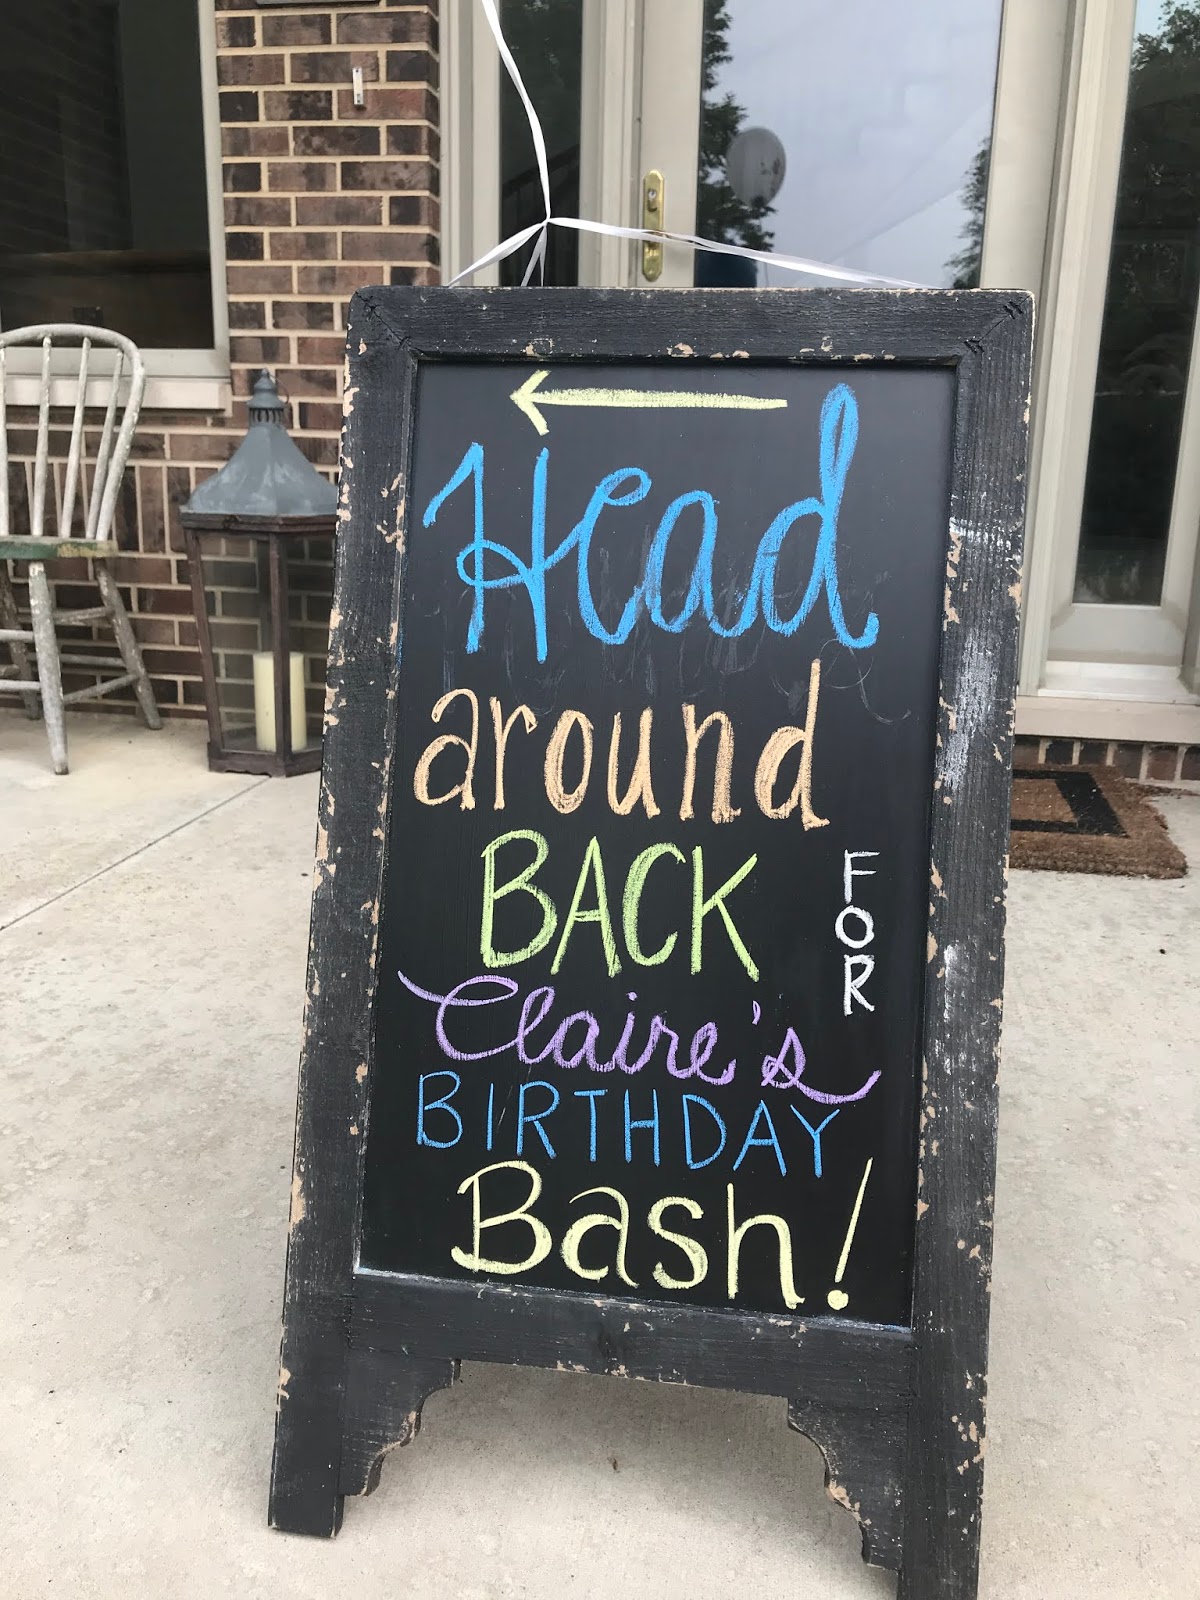 Head
around
BACK
FOR
Claire's
BIRTHDAY
Bash!